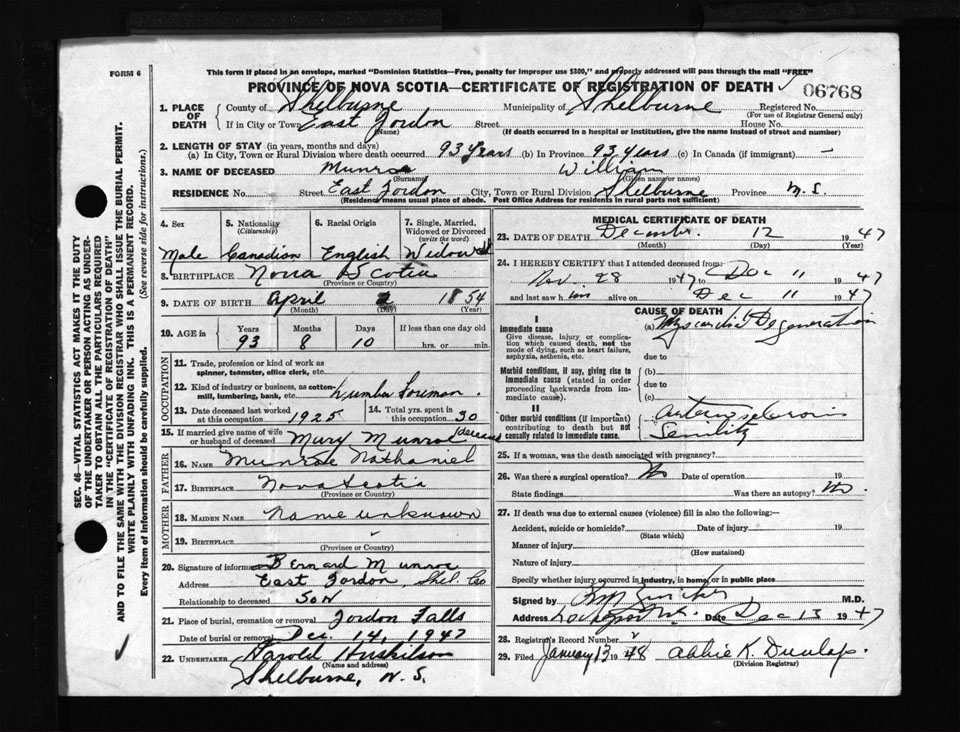 FORM 6
This form if placed in an envelope, marked "Dominion Statistics—Free, penalty for improper use $300," and properly addressed will pass through the mail "FREE"
PROVINCE OF NOVA SCOTIA—CERTIFICATE OF REGISTRATION OF DEATH
06768
1. PLACE OF DEATH
County of Shelburne Municipality of Shelburne Registered No.
(For use of Registrar General only)
If in City or Town East Jordon Street House No.
(Name) (If death occurred in a hospital or institution, give the name instead of street and number)
2. LENGTH OF STAY (in years, months and days)
(a) In City, Town or Rural Division where death occurred 93 years (b) In Province 93 years (c) In Canada (if immigrant) —
3. NAME OF DECEASED Munroe William
(Surname) (Given name or names)
RESIDENCE No. Street East Jordon City, Town or Rural Division Shelburne Province N.S.
(Residence means usual place of abode. Post Office Address for residents in rural parts not sufficient)
4. Sex 5. Nationality (Citizenship) 6. Racial Origin 7. Single, Married, Widowed or Divorced (write the word)
Male Canadian English Widowed
8. BIRTHPLACE Nova Scotia
(Province or Country)
9. DATE OF BIRTH April 2 1854
(Month) (Day) (Year)
10. AGE in Years Months Days If less than one day old
93 8 10 hrs. or min.
OCCUPATION
11. Trade, profession or kind of work as spinner, teamster, office clerk, etc.
12. Kind of industry or business, as cotton-mill, lumbering, bank, etc. Lumber Foreman
13. Date deceased last worked at this occupation 1925 14. Total yrs. spent in this occupation 30
15. If married give name of wife or husband of deceased Mary Munroe
FATHER
16. NAME Munroe Nathaniel
17. BIRTHPLACE Nova Scotia
(Province or Country)
MOTHER
18. MAIDEN NAME Name unknown
19. BIRTHPLACE
(Province or Country)
20. Signature of informant Bernard Munroe
Address East Jordon, Shel. Co
Relationship to deceased Son
21. Place of burial, cremation or removal Jordon Falls
Date of burial or removal Dec. 14, 1947
22. UNDERTAKER Harold Huskilson
(Name and address)
Shelburne, N.S.
MEDICAL CERTIFICATE OF DEATH
23. DATE OF DEATH December 12 1947
(Month) (Day) (Year)
24. I HEREBY CERTIFY that I attended deceased from:
Nov. 28 1947 to Dec 11 1947
and last saw him alive on Dec 11 1947
CAUSE OF DEATH
I
Immediate cause
Give disease, injury or complication which caused death, not the mode of dying, such as heart failure, asphyxia, asthenia, etc.
(a) Myocardial Degeneration
due to
Morbid conditions, if any, giving rise to immediate cause (stated in order proceeding backwards from immediate cause).
(b)
due to
(c)
II
Other morbid conditions (if important) contributing to death but not causally related to immediate cause.
Arteriosclerosis
Senility
25. If a woman, was the death associated with pregnancy?
26. Was there a surgical operation? No Date of operation 19
State findings Was there an autopsy? No.
27. If death was due to external causes (violence) fill in also the following:—
Accident, suicide or homicide? Date of injury 19
(State which)
Manner of injury
(How sustained)
Nature of injury
Specify whether injury occurred in industry, in home, or in public place
Signed by M.D.
Address Lockeport N.S. Date Dec 13 1947
28. Registrar's Record Number
29. Filed January 13 1948 Abbie K. Dunlap.
(Division Registrar)
SEC. 46—VITAL STATISTICS ACT MAKES IT THE DUTY
OF THE UNDERTAKER OR PERSON ACTING AS UNDER-
TAKER TO OBTAIN ALL THE PARTICULARS REQUIRED
IN THE "CERTIFICATE OF REGISTRATION OF DEATH"
AND TO FILE THE SAME WITH THE DIVISION REGISTRAR WHO SHALL ISSUE THE BURIAL PERMIT.
WRITE PLAINLY WITH UNFADING INK. THIS IS A PERMANENT RECORD.
Every item of Information should be carefully supplied. (See reverse side for instructions.)